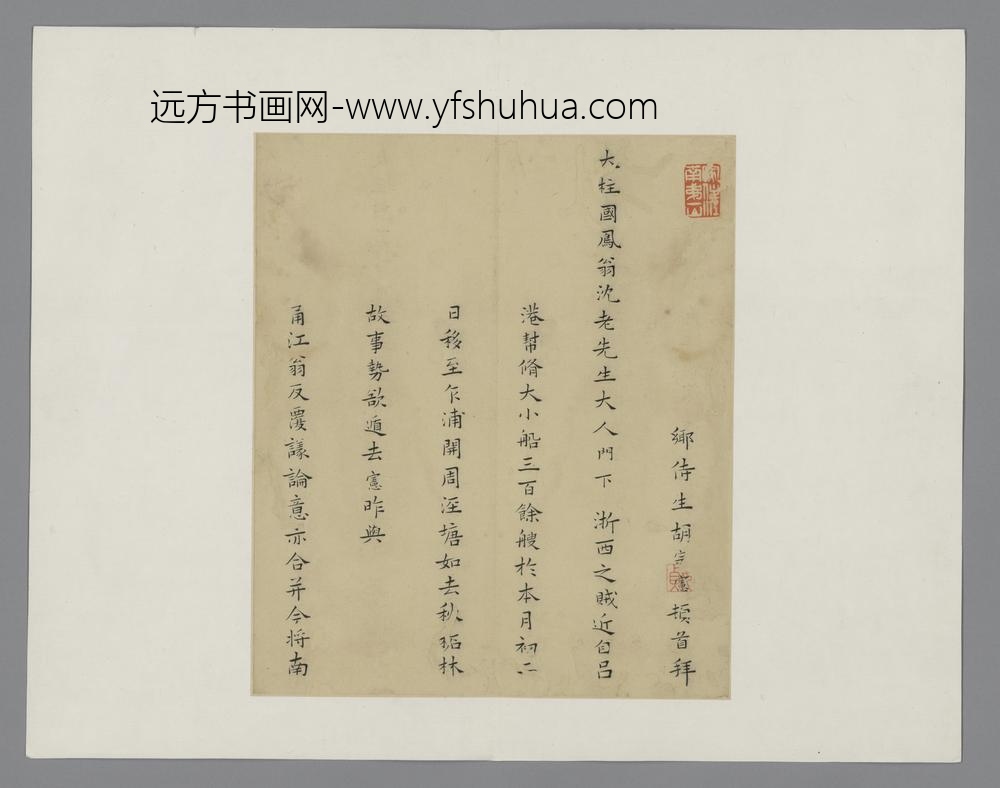 远方书画网-www.yfshuhua.com
鄉侍生胡宗憲頓首拜
大柱國鳳翁沈老先生大人門下 浙西之賊近自呂
港幫脩大小船三百餘艘於本月初二
日移至乍浦開周涇塘如去秋柘林
故事勢欲遁去憲昨與
甬江翁反覆議論意亦合并今将南